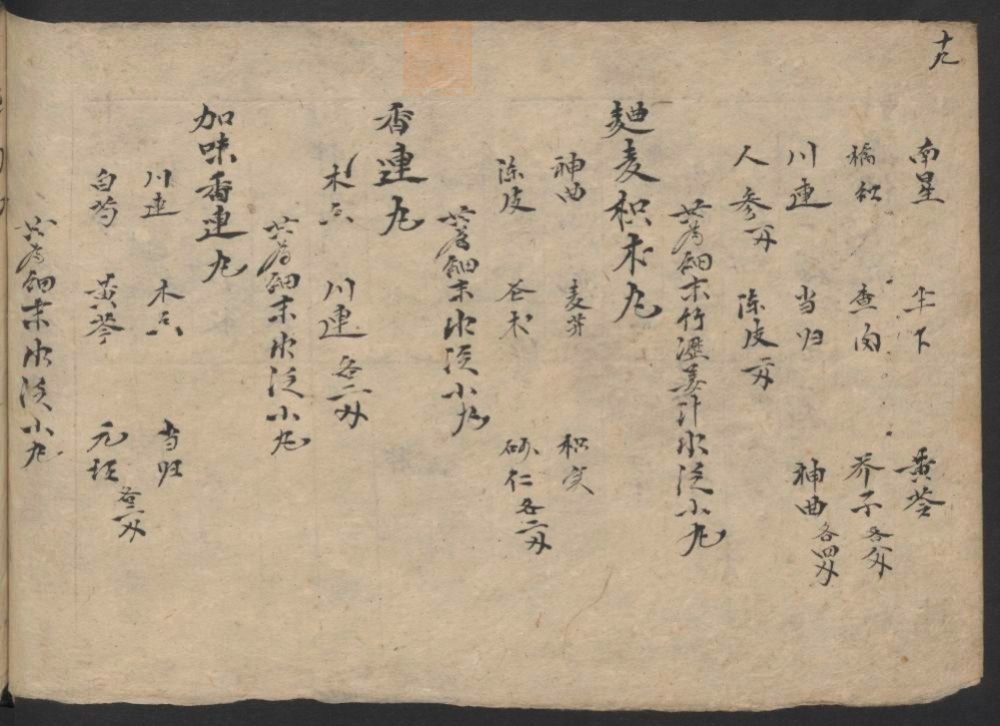 十九
南星 半下 黄芩
橘紅 查肉 芥子各 
川連 当归 神曲各四
人参 陈皮
共為細末竹瀝姜汁水泛小丸
麯麦枳朮丸
神曲 麦芽 枳实
陈皮 苍术 砂仁各二
共為細末水泛小丸
香連丸
木香 川連各二
共為細末水泛小丸
加味香連丸
川連 木香 当归
白芍 黄芩 元胡
共為細末水泛小丸